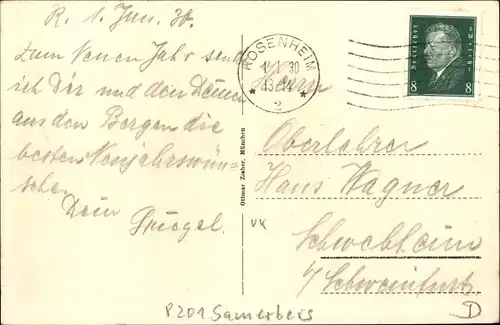 R. 1. Jan. 30.
Zum Neuen Jahr send
ich Dir und den Deinen
aus den Bergen die
besten Neujahrswün-
sche.
Dein
ROSENHEIM
1.1.30
2
Deutsches Reich
8 8
Herrn
Oberlehrer
Hans Wagner
Schwebheim
b/ Schweinfurt
Ottmar Zieher, München
VK
8201 Samerberg
D